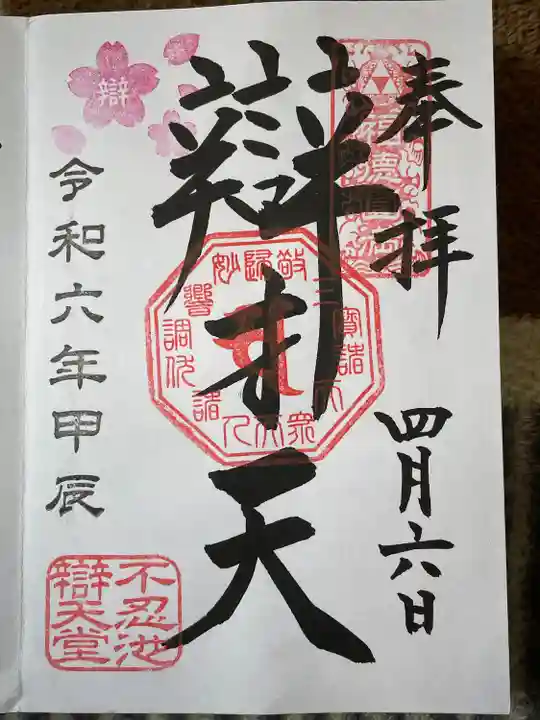 奉拝
四月六日
辯才天
辯
令和六年甲辰
不忍池
辯天堂